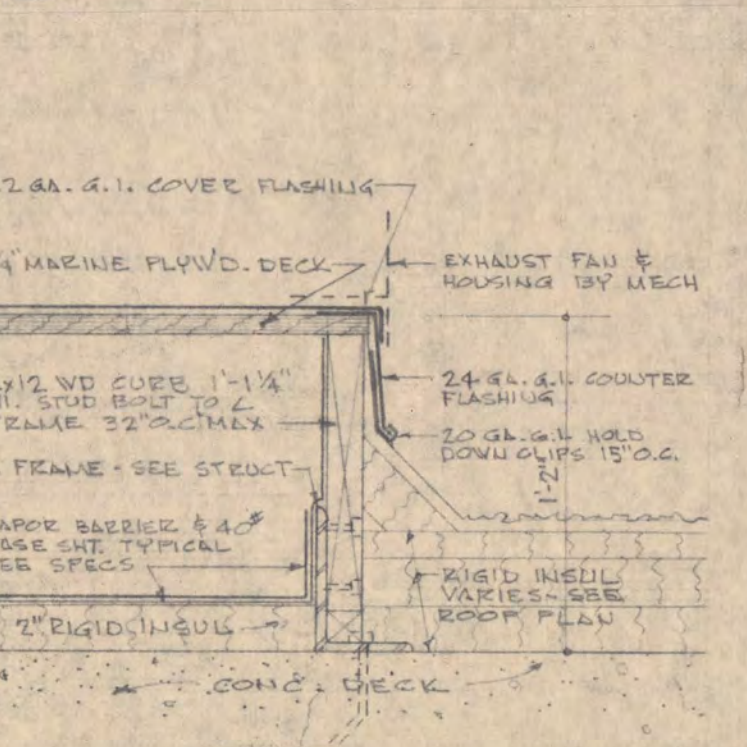 2 GA. G.I. COVER FLASHING
4" MARINE PLYW'D. DECK
EXHAUST FAN &
HOUSING BY MECH
x12 WD CURB 1'-1¼"
STUD BOLT TO L
FRAME 32" O.C. MAX
24 GA. G.I. COUNTER
FLASHING
20 GA. G.I. HOLD
DOWN CLIPS 15" O.C.
FRAME - SEE STRUCT
1'-2"
APOR BARRIER & 40#
ASE SHT. TYPICAL
EE SPECS
RIGID INSUL
VARIES - SEE
ROOF PLAN
2" RIGID INSUL
CONC. DECK